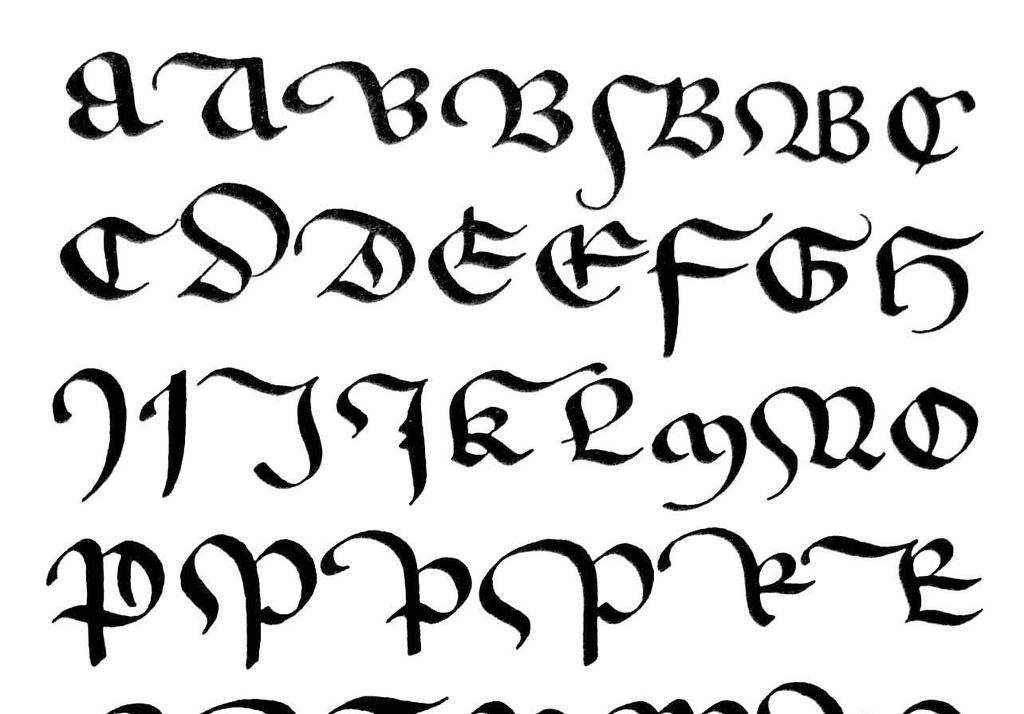 A A B B B B C
C D D E E F G H
I I I I K L M M O
P P P P R E